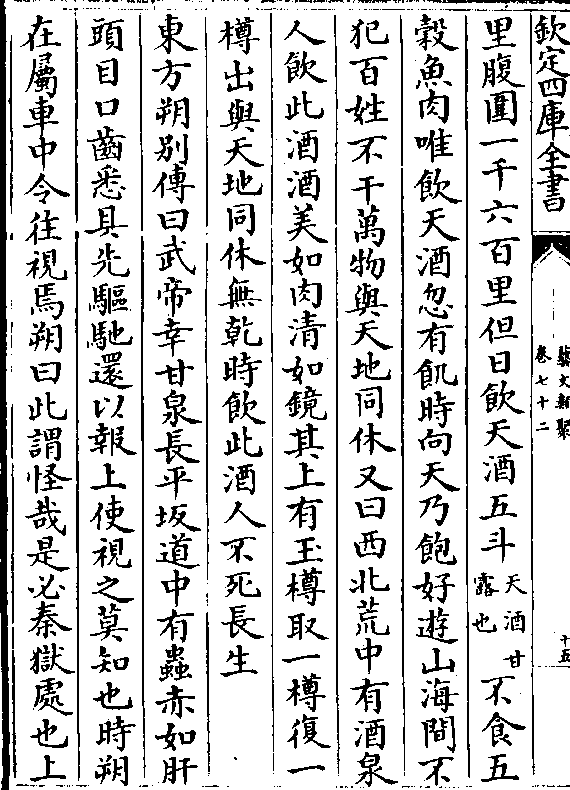 欽定四庫全書
藝文類聚
卷七十二
十五
里腹圍一千六百里但日飲天酒五斗天酒甘露也不食五
穀魚肉唯飲天酒忽有飢時向天乃飽好遊山海間不
犯百姓不干萬物與天地同休又曰西北荒中有酒泉
人飲此酒酒美如肉清如鏡其上有玉樽取一樽復一
樽出與天地同休無乾時飲此酒人不死長生
東方朔别傳曰武帝幸甘泉長平坂道中有蟲赤如肝
頭目口齒悉具先驅馳還以報上使視之莫知也時朔
在屬車中令往視焉朔曰此謂怪哉是必秦獄處也上